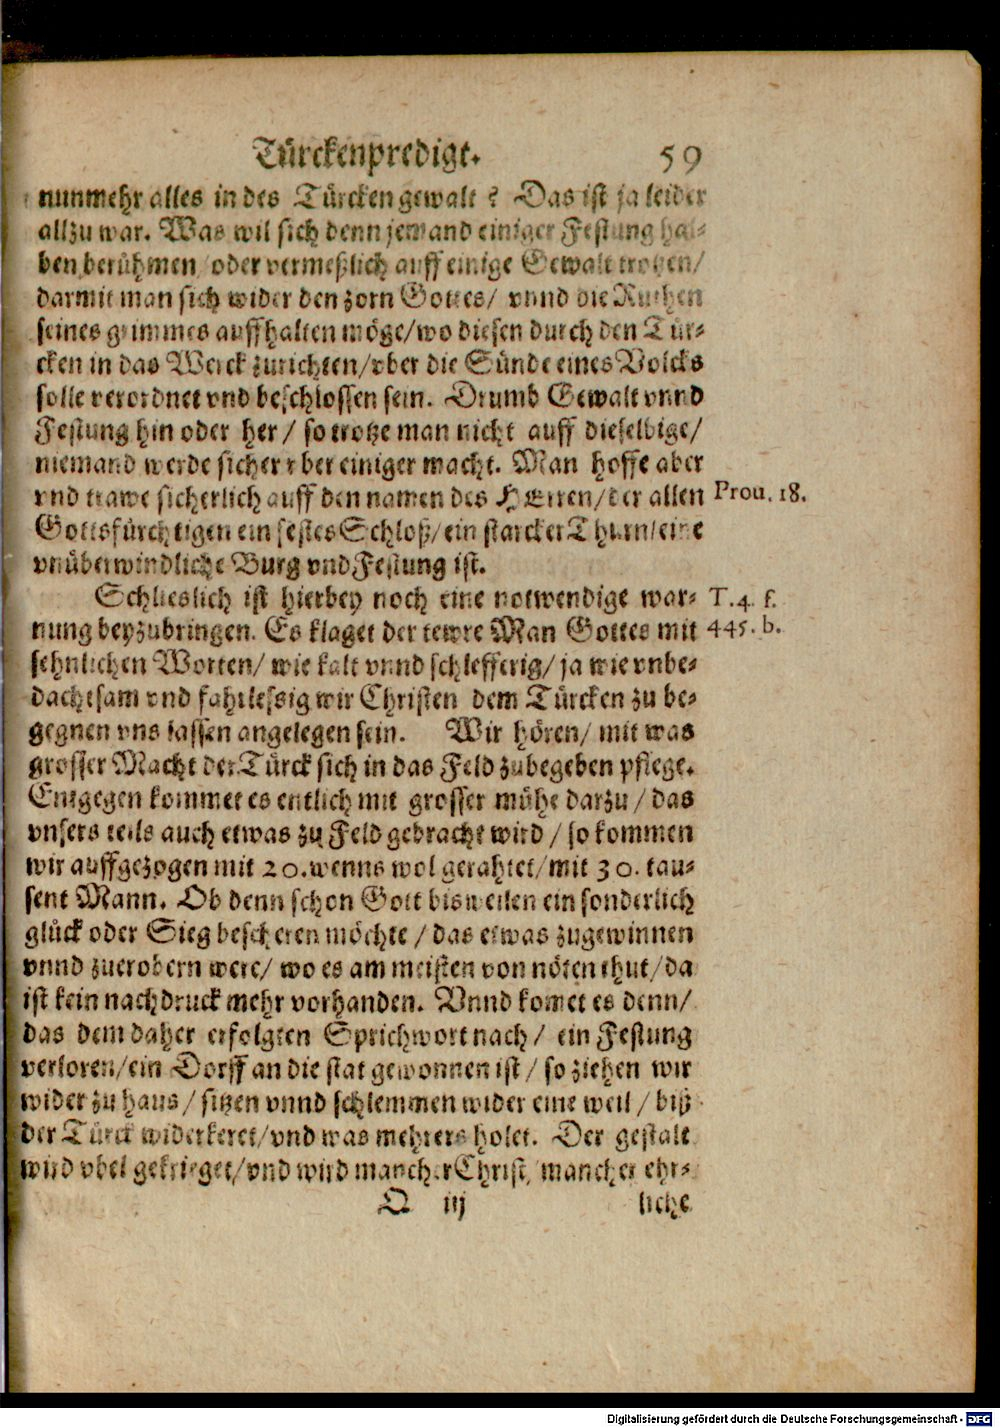 Türckenpredigt. 59
nunmehr alles in des Türcken gewalt? Das ist ja leider
allzu war. Was wil sich denn jemand einiger Festung hal-
ben berühmen / oder vermeßlich auff einige Gewalt trotzen/
darmit man sich wider den zorn Gottes/ vnnd die Ruthen
seines grimmes auffhalten möge/wo diesen durch den Tür-
cken in das Werck zurichten/vber die Sünde eines Volcks
solle verordnet vnd beschlossen sein. Drumb Gewalt vnnd
Festung hin oder her / so trotze man nicht auff dieselbige/
niemand werde sicher vber einiger macht. Man hoffe aber
vnd trawe sicherlich auff den namen des HErren/der allen
Prou. 18.
Gottsfürchtigen ein festes Schloß/ein starcker Thurn/eine
vnüberwindliche Burg vnd Festung ist.
Schlieslich ist hierbey noch eine notwendige war-
T.4. f.
nung beyzubringen. Es klaget der tewre Man Gottes mit
445. b.
sehnlichen Worten/ wie kalt vnnd schlefferig/ ja wie vnbe-
dachtsam vnd fahrlessig wir Christen dem Türcken zu be-
gegnen vns lassen angelegen sein. Wir hören/ mit was
grosser Macht der Türck sich in das Feld zubegeben pflege.
Entgegen kommet es entlich mit grosser mühe darzu / das
vnsers teils auch etwas zu Feld gebracht wird / so kommen
wir auffgezogen mit 20. wenns wol gerahtet/mit 30. tau-
sent Mann. Ob denn schon Gott bisweilen ein sonderlich
glück oder Sieg bescheren möchte / das etwas zugewinnen
vnnd zuerobern were/ wo es am meisten von nöten thut/da
ist kein nachdruck mehr vorhanden. Vnnd komet es denn/
das dem daher erfolgten Sprichwort nach / ein Festung
verloren/ein Dorff an die stat gewonnen ist / so ziehen wir
wider zu haus / sitzen vnnd schlemmen wider eine weil / biß
der Türck widerkeret/vnd was mehrers holet. Der gestalt
wird vbel gekrieget/vnd wird mancher Christ, mancher ehr-
O iij liche
Digitalisierung gefördert durch die Deutsche Forschungsgemeinschaft - DFG